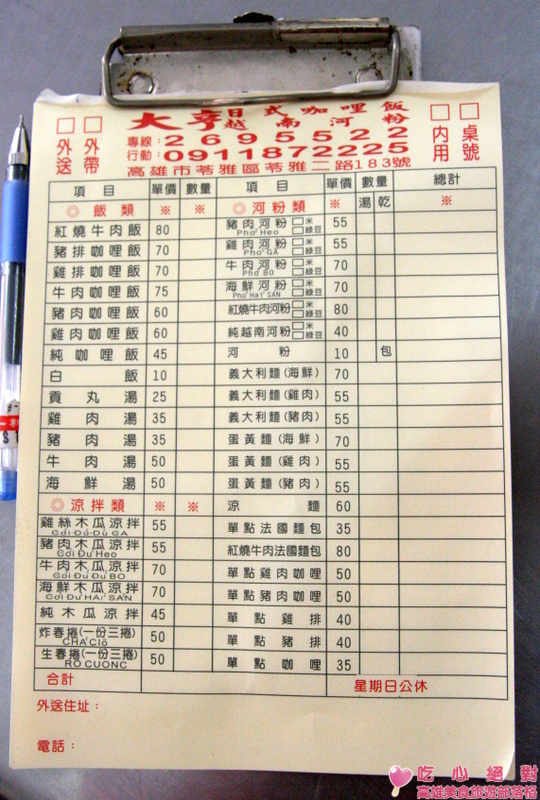 大亨日式咖哩飯
越南河粉
□外送 □外帶
專線：2695522
行動：0911872225
高雄市苓雅區苓雅二路183號
□內用 □桌號
項目 單價 數量 項目 單價 數量 總計
◎飯類 ※ ※ ◎河粉類 ※ 湯 乾 ※
紅燒牛肉飯 80 豬肉河粉 Pho Heo □米 □綠豆 55
豬排咖哩飯 70 雞肉河粉 Pho GA □米 □綠豆 55
雞排咖哩飯 70 牛肉河粉 Pho BO □米 □綠豆 70
牛肉咖哩飯 75 海鮮河粉 Pho Hai SAN □米 □綠豆 70
豬肉咖哩飯 60 紅燒牛肉河粉 □米 □綠豆 80
雞肉咖哩飯 60 純越南河粉 □米 □綠豆 40
純咖哩飯 45 河粉 10 包
白飯 10 義大利麵(海鮮) 70
貢丸湯 25 義大利麵(雞肉) 55
雞肉湯 35 義大利麵(豬肉) 55
豬肉湯 35 蛋黃麵(海鮮) 70
牛肉湯 50 蛋黃麵(雞肉) 55
海鮮湯 50 蛋黃麵(豬肉) 55
◎涼拌類 ※ ※ 涼麵 60
雞絲木瓜涼拌 Gơi Đu Đu GA 55 單點法國麵包 35
豬肉木瓜涼拌 Gơi Đu Đu Heo 55 紅燒牛肉法國麵包 80
牛肉木瓜涼拌 Gơi Đu Đu BO 70 單點雞肉咖哩 50
海鮮木瓜涼拌 Gơi Đu Đu HAi SAN 70 單點豬肉咖哩 50
純木瓜涼拌 45 單點雞排 40
炸春捲(一份三捲) CHA Giò 50 單點豬排 40
生春捲(一份三捲) RO CUONC 50 單點咖哩 35
合計 星期日公休
外送住址：
電話：
吃心絕對
高雄美食旅遊部落格